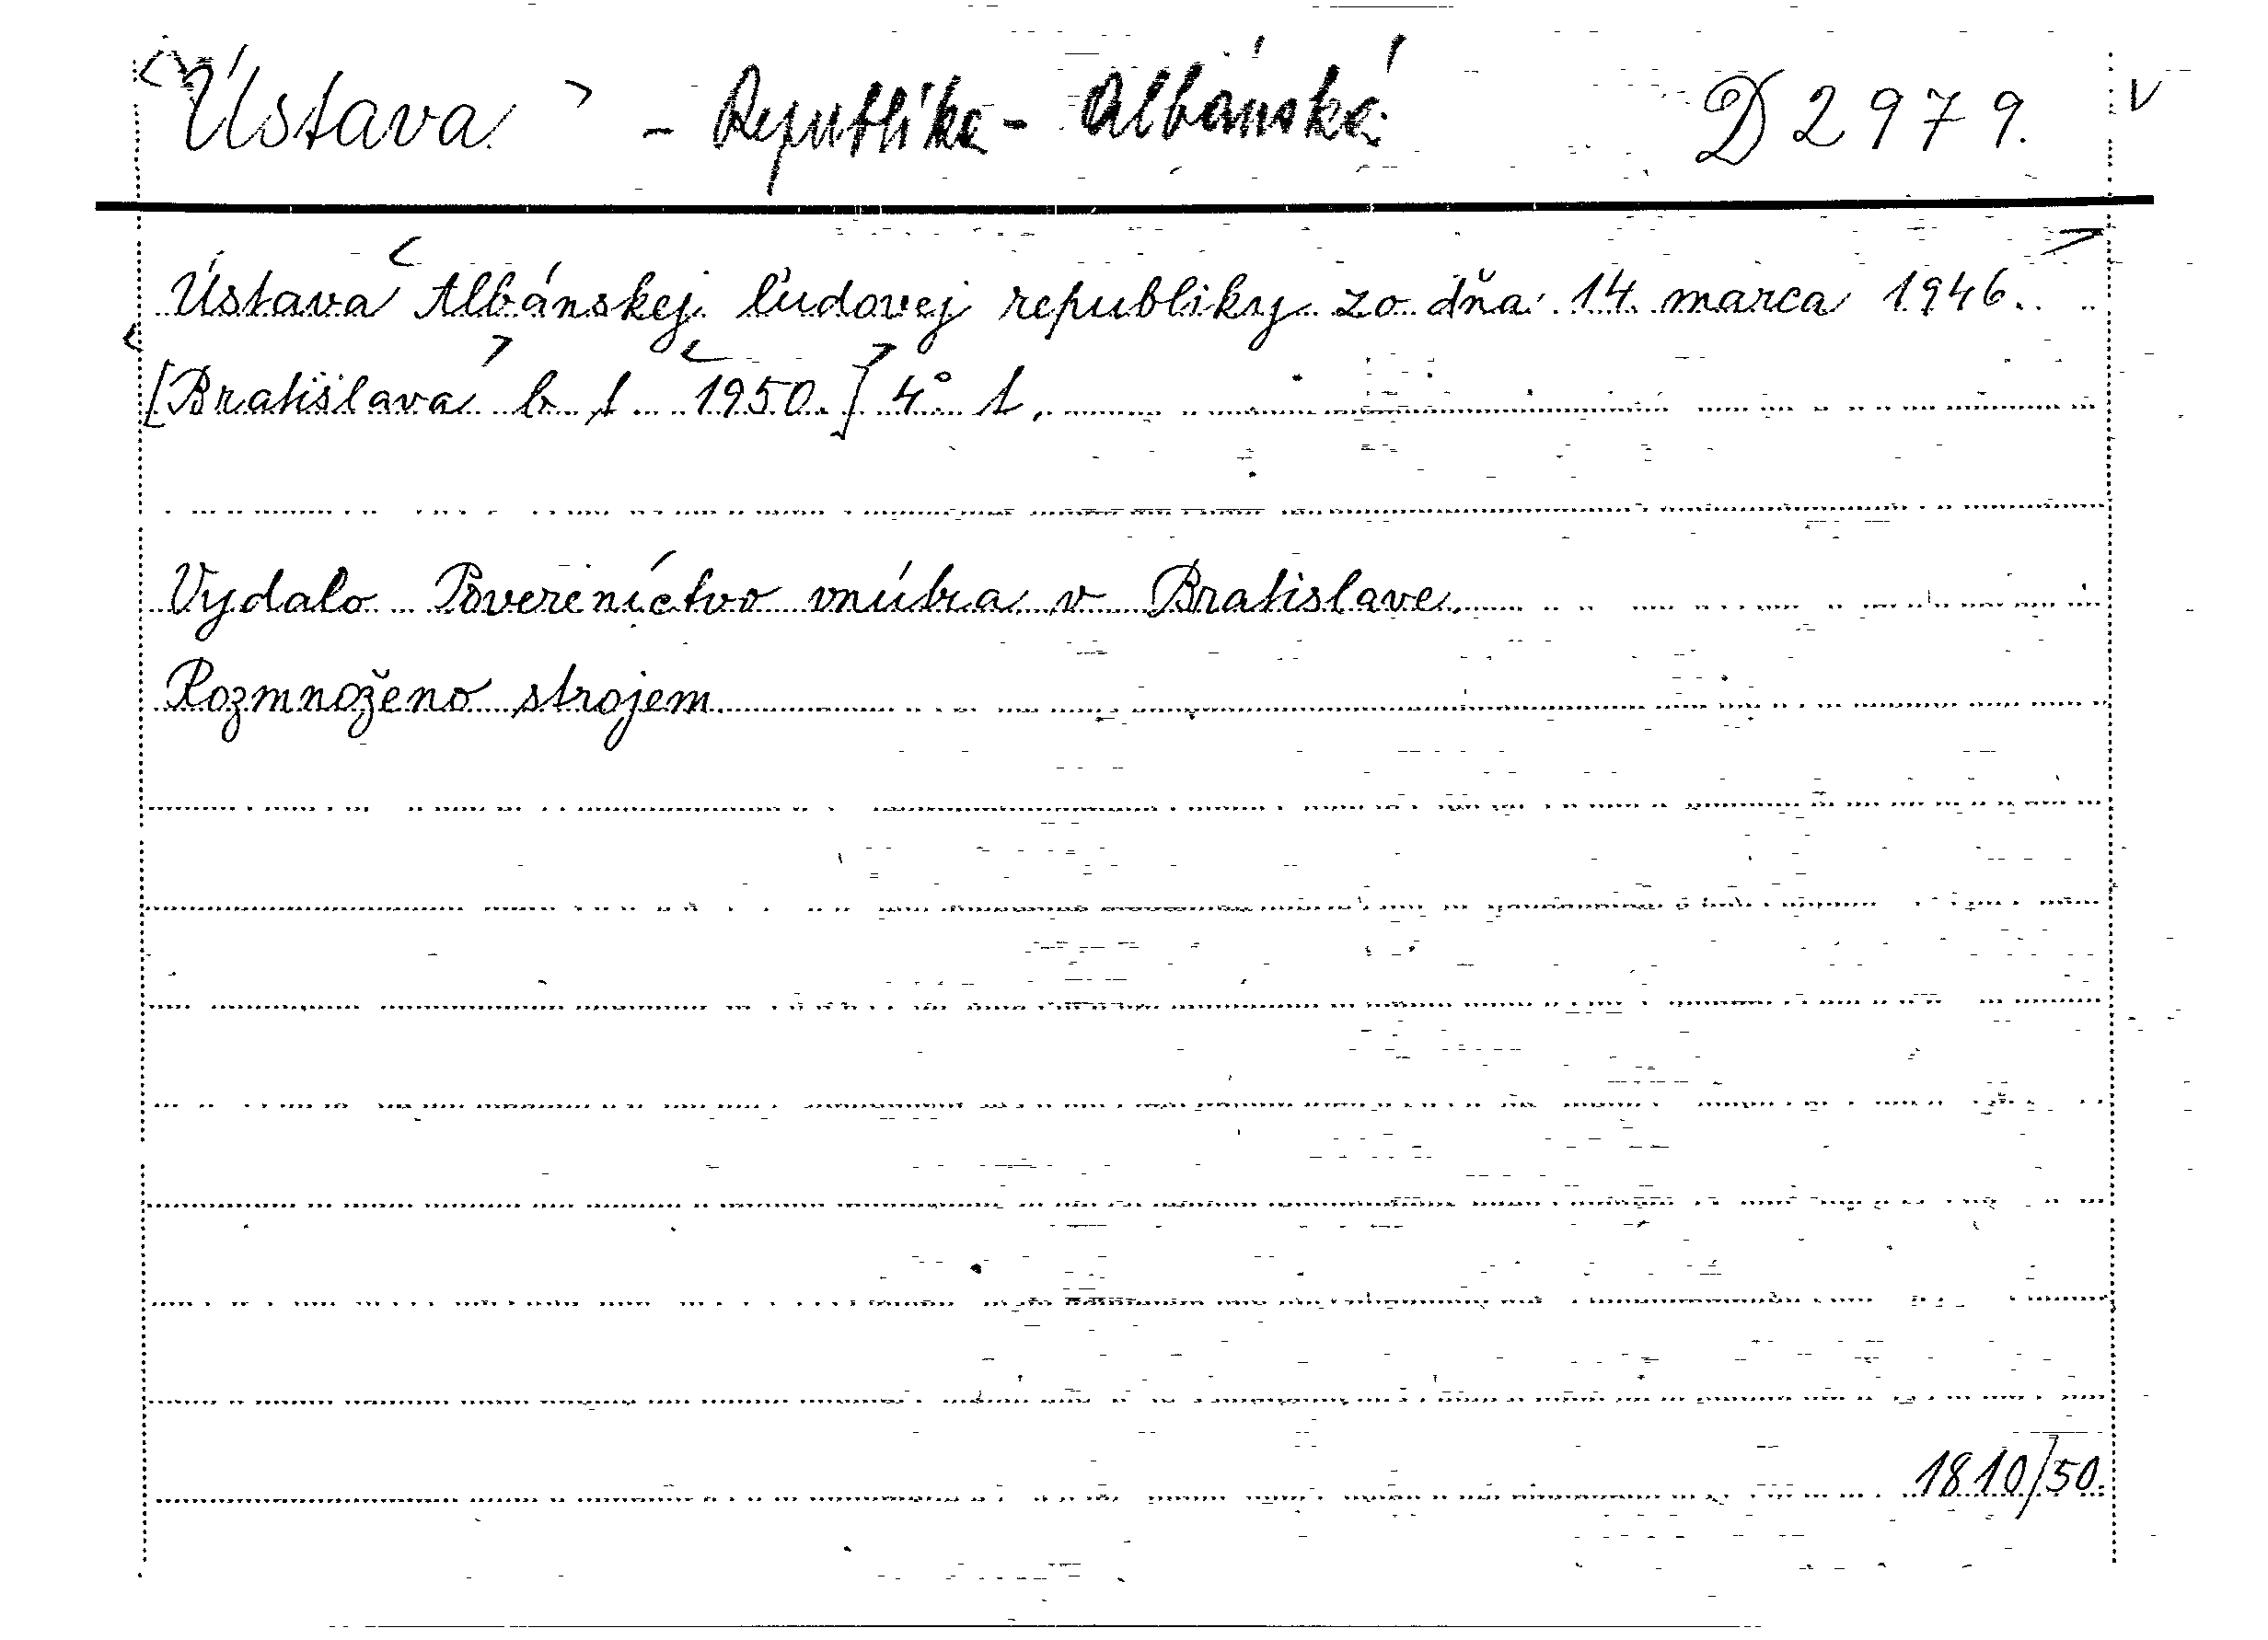 Ústava - Republika - Albánská D 2979. v
Ústava Albánskej ľudovej republiky zo dňa 14. marca 1946.
[Bratislava b. t. 1950.] 4° 1.
Vydalo Povereníctvo vnútra v Bratislave.
Rozmnoženo strojem.
1810/50.